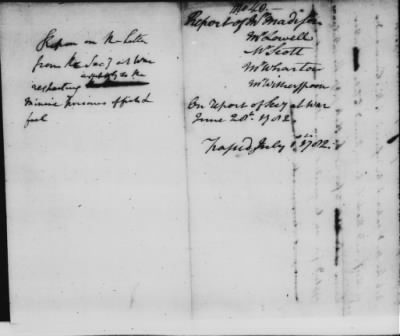 Report on the Letter
from the Secy at War
respecting
fuel
No 40.
Report of Mr Madison
Mr Lowell
Mr Scott
Mr Wharton
Mr Witherspoon
On report of Secy at War
June 20th 1782.
Passed July 1st 1782.